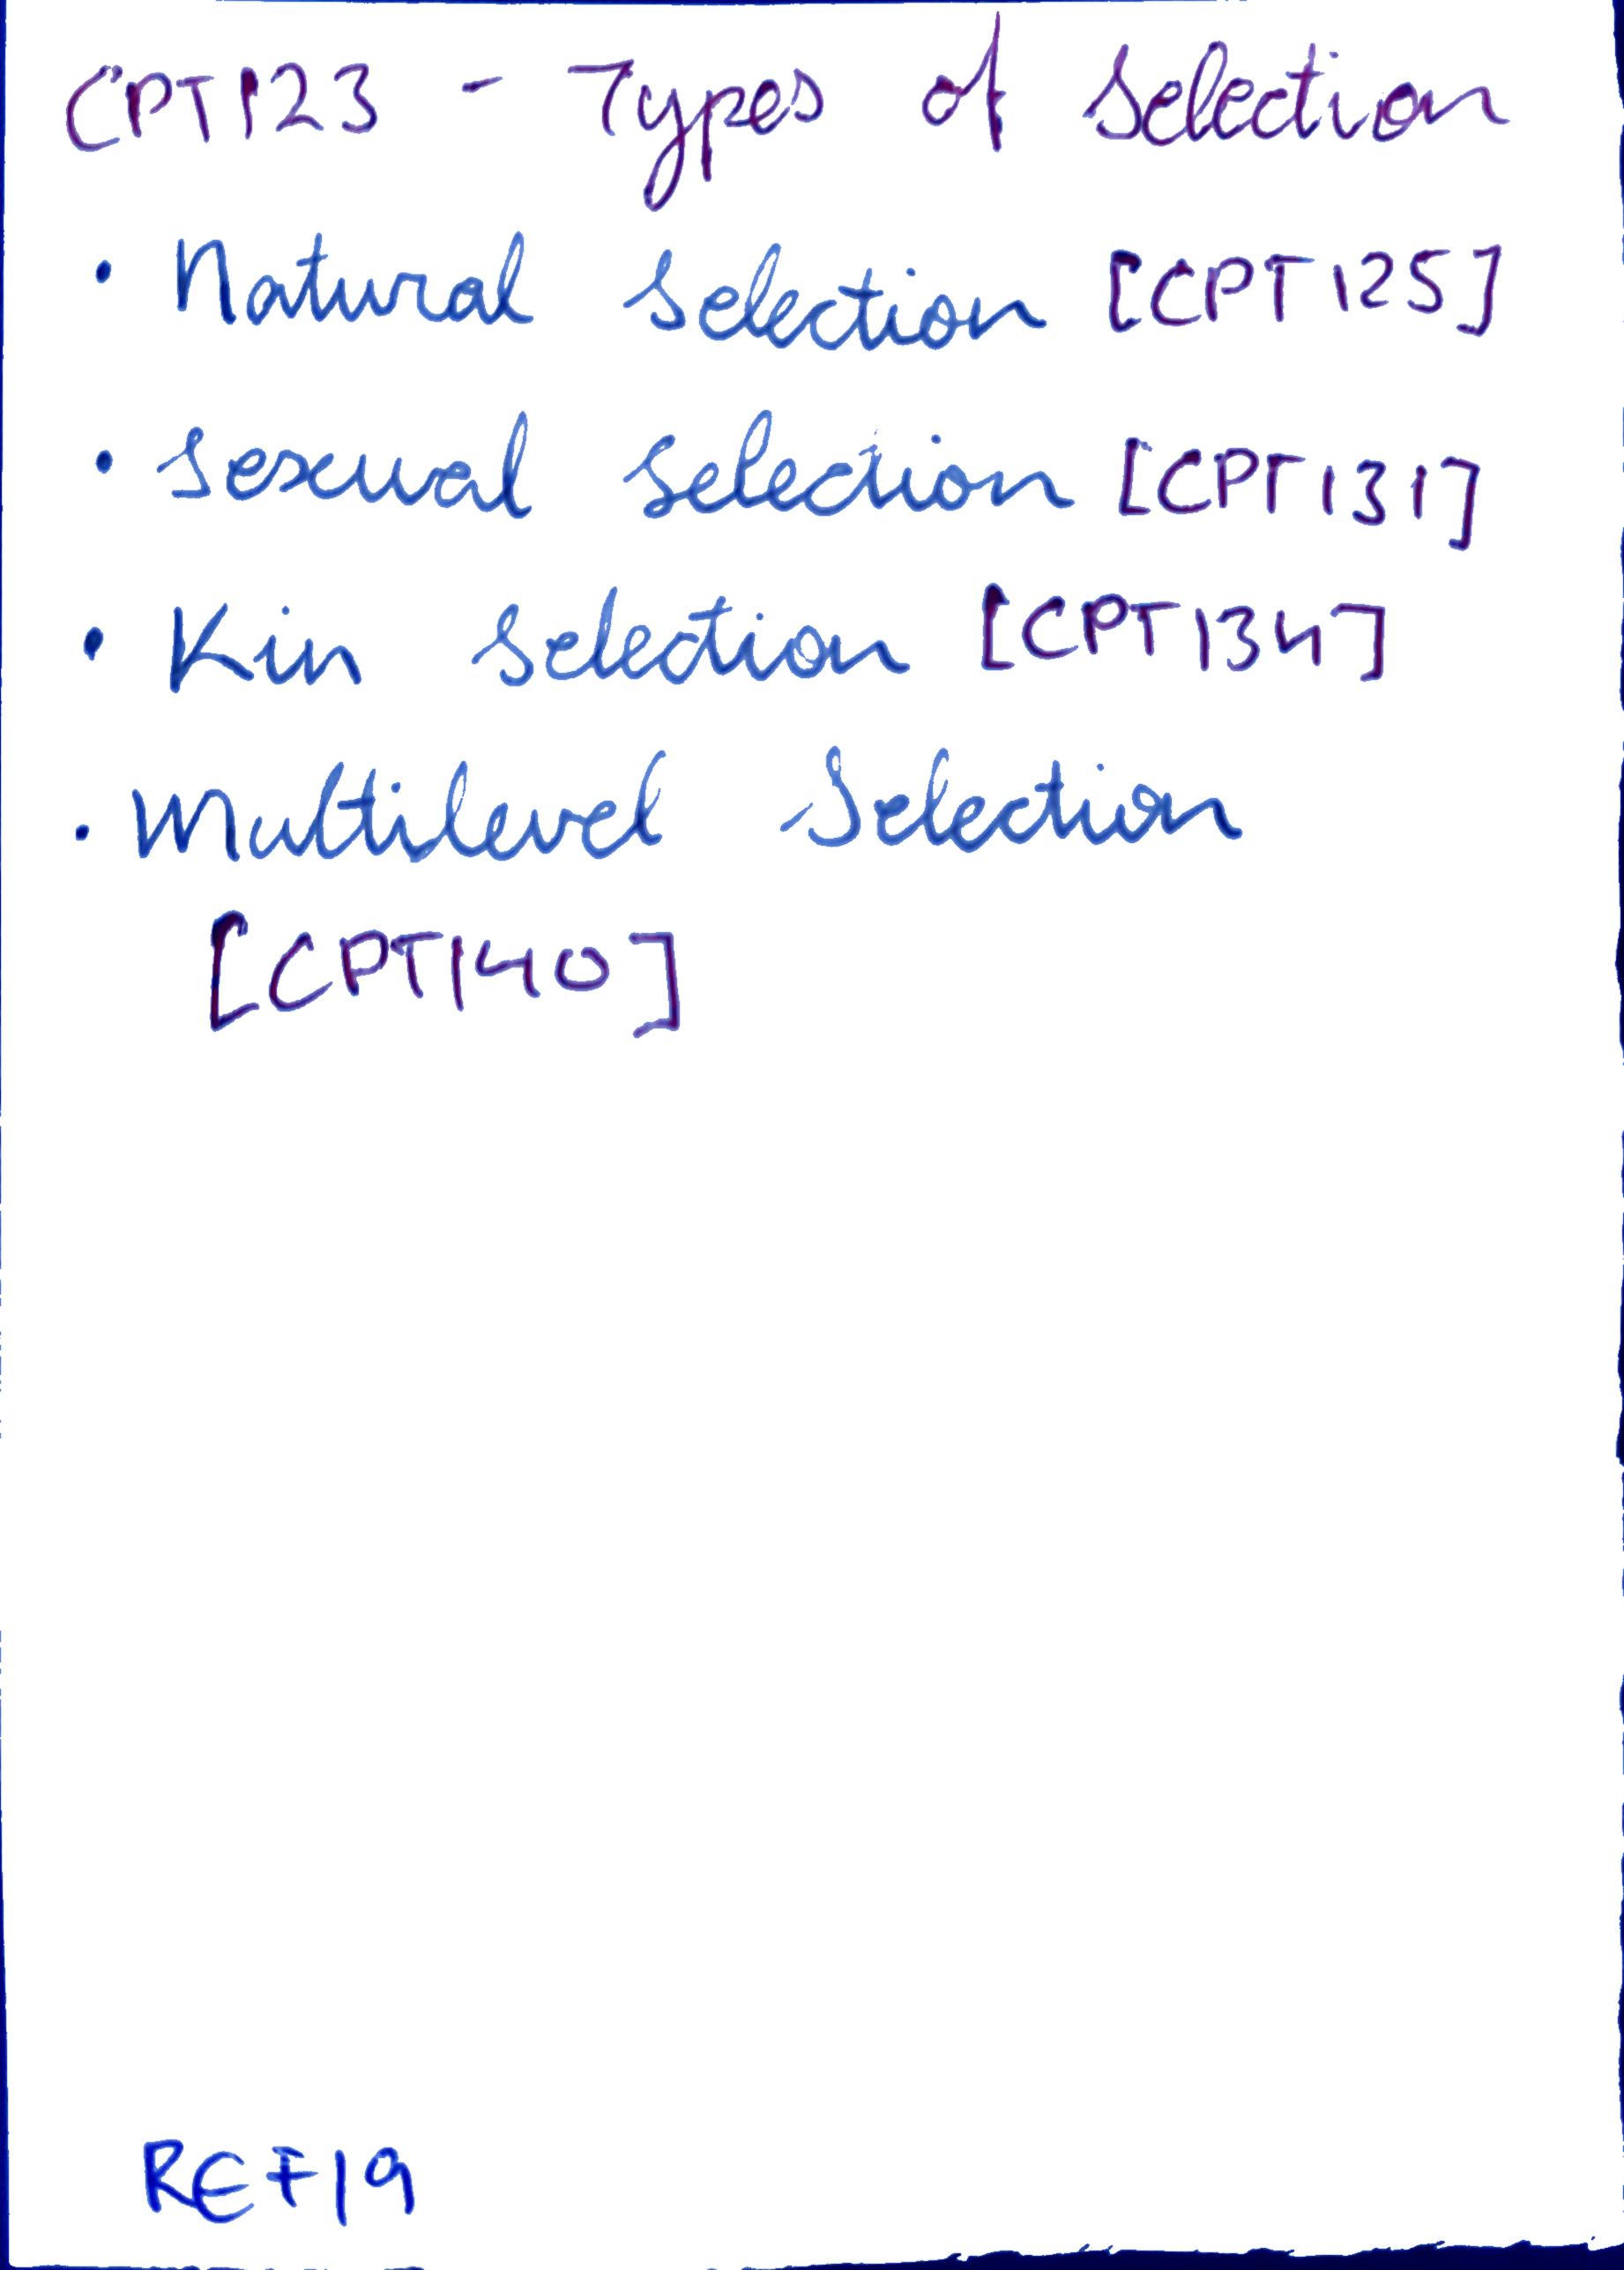 CPT123 - Types of Selection
• Natural Selection [CPT125]
• Sexual Selection [CPT131]
• Kin Selection [CPT134]
• Multilevel Selection
[CPT140]
REF19